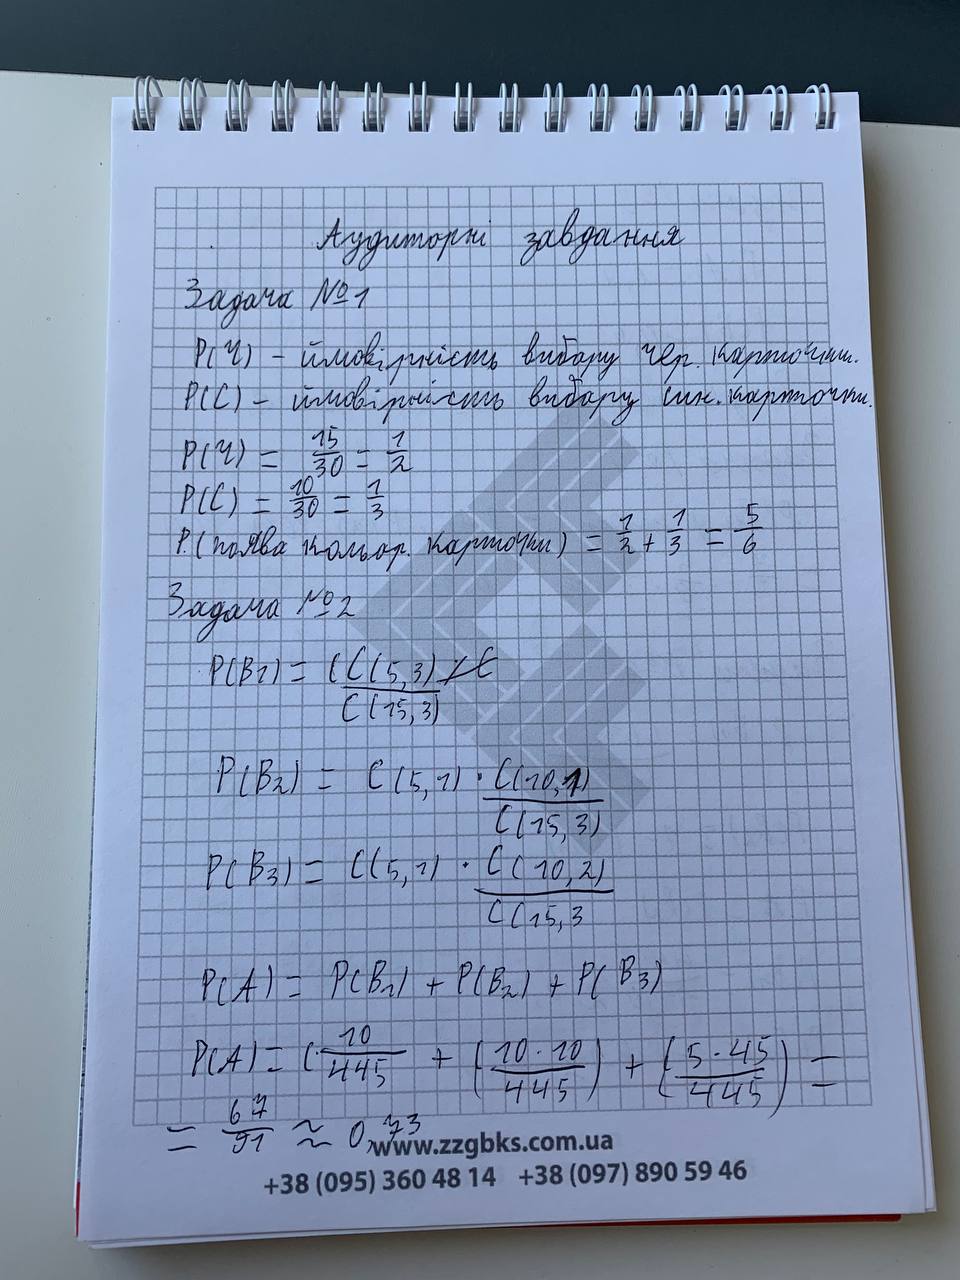 Аудиторні завдання
Задача №1
P(Ч) - ймовірність вибору чер. карточки.
P(С) - ймовірність вибору син. карточки.
P(Ч) = 15/30 = 1/2
P(С) = 10/30 = 1/3
P(поява кольор. карточки) = 1/2 + 1/3 = 5/6
Задача №2
P(B1) = (C(5,3) / C(15,3)
P(B2) = C(5,1) · C(10,1) / C(15,3)
P(B3) = C(5,1) · C(10,2) / C(15,3
P(A) = P(B1) + P(B2) + P(B3)
P(A) = (· 10/445 + (10·10/445) + (5·45/445) =
= 67/91 ≈ 0,73
www.zzgbks.com.ua
+38 (095) 360 48 14 +38 (097) 890 59 46